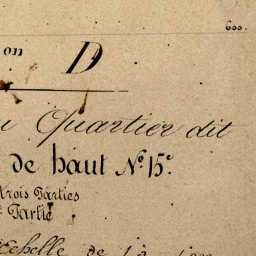 600.
on D
Quartier dit
de haut N.º 15.e
trois Parties
Partie
Echelle de 1 à